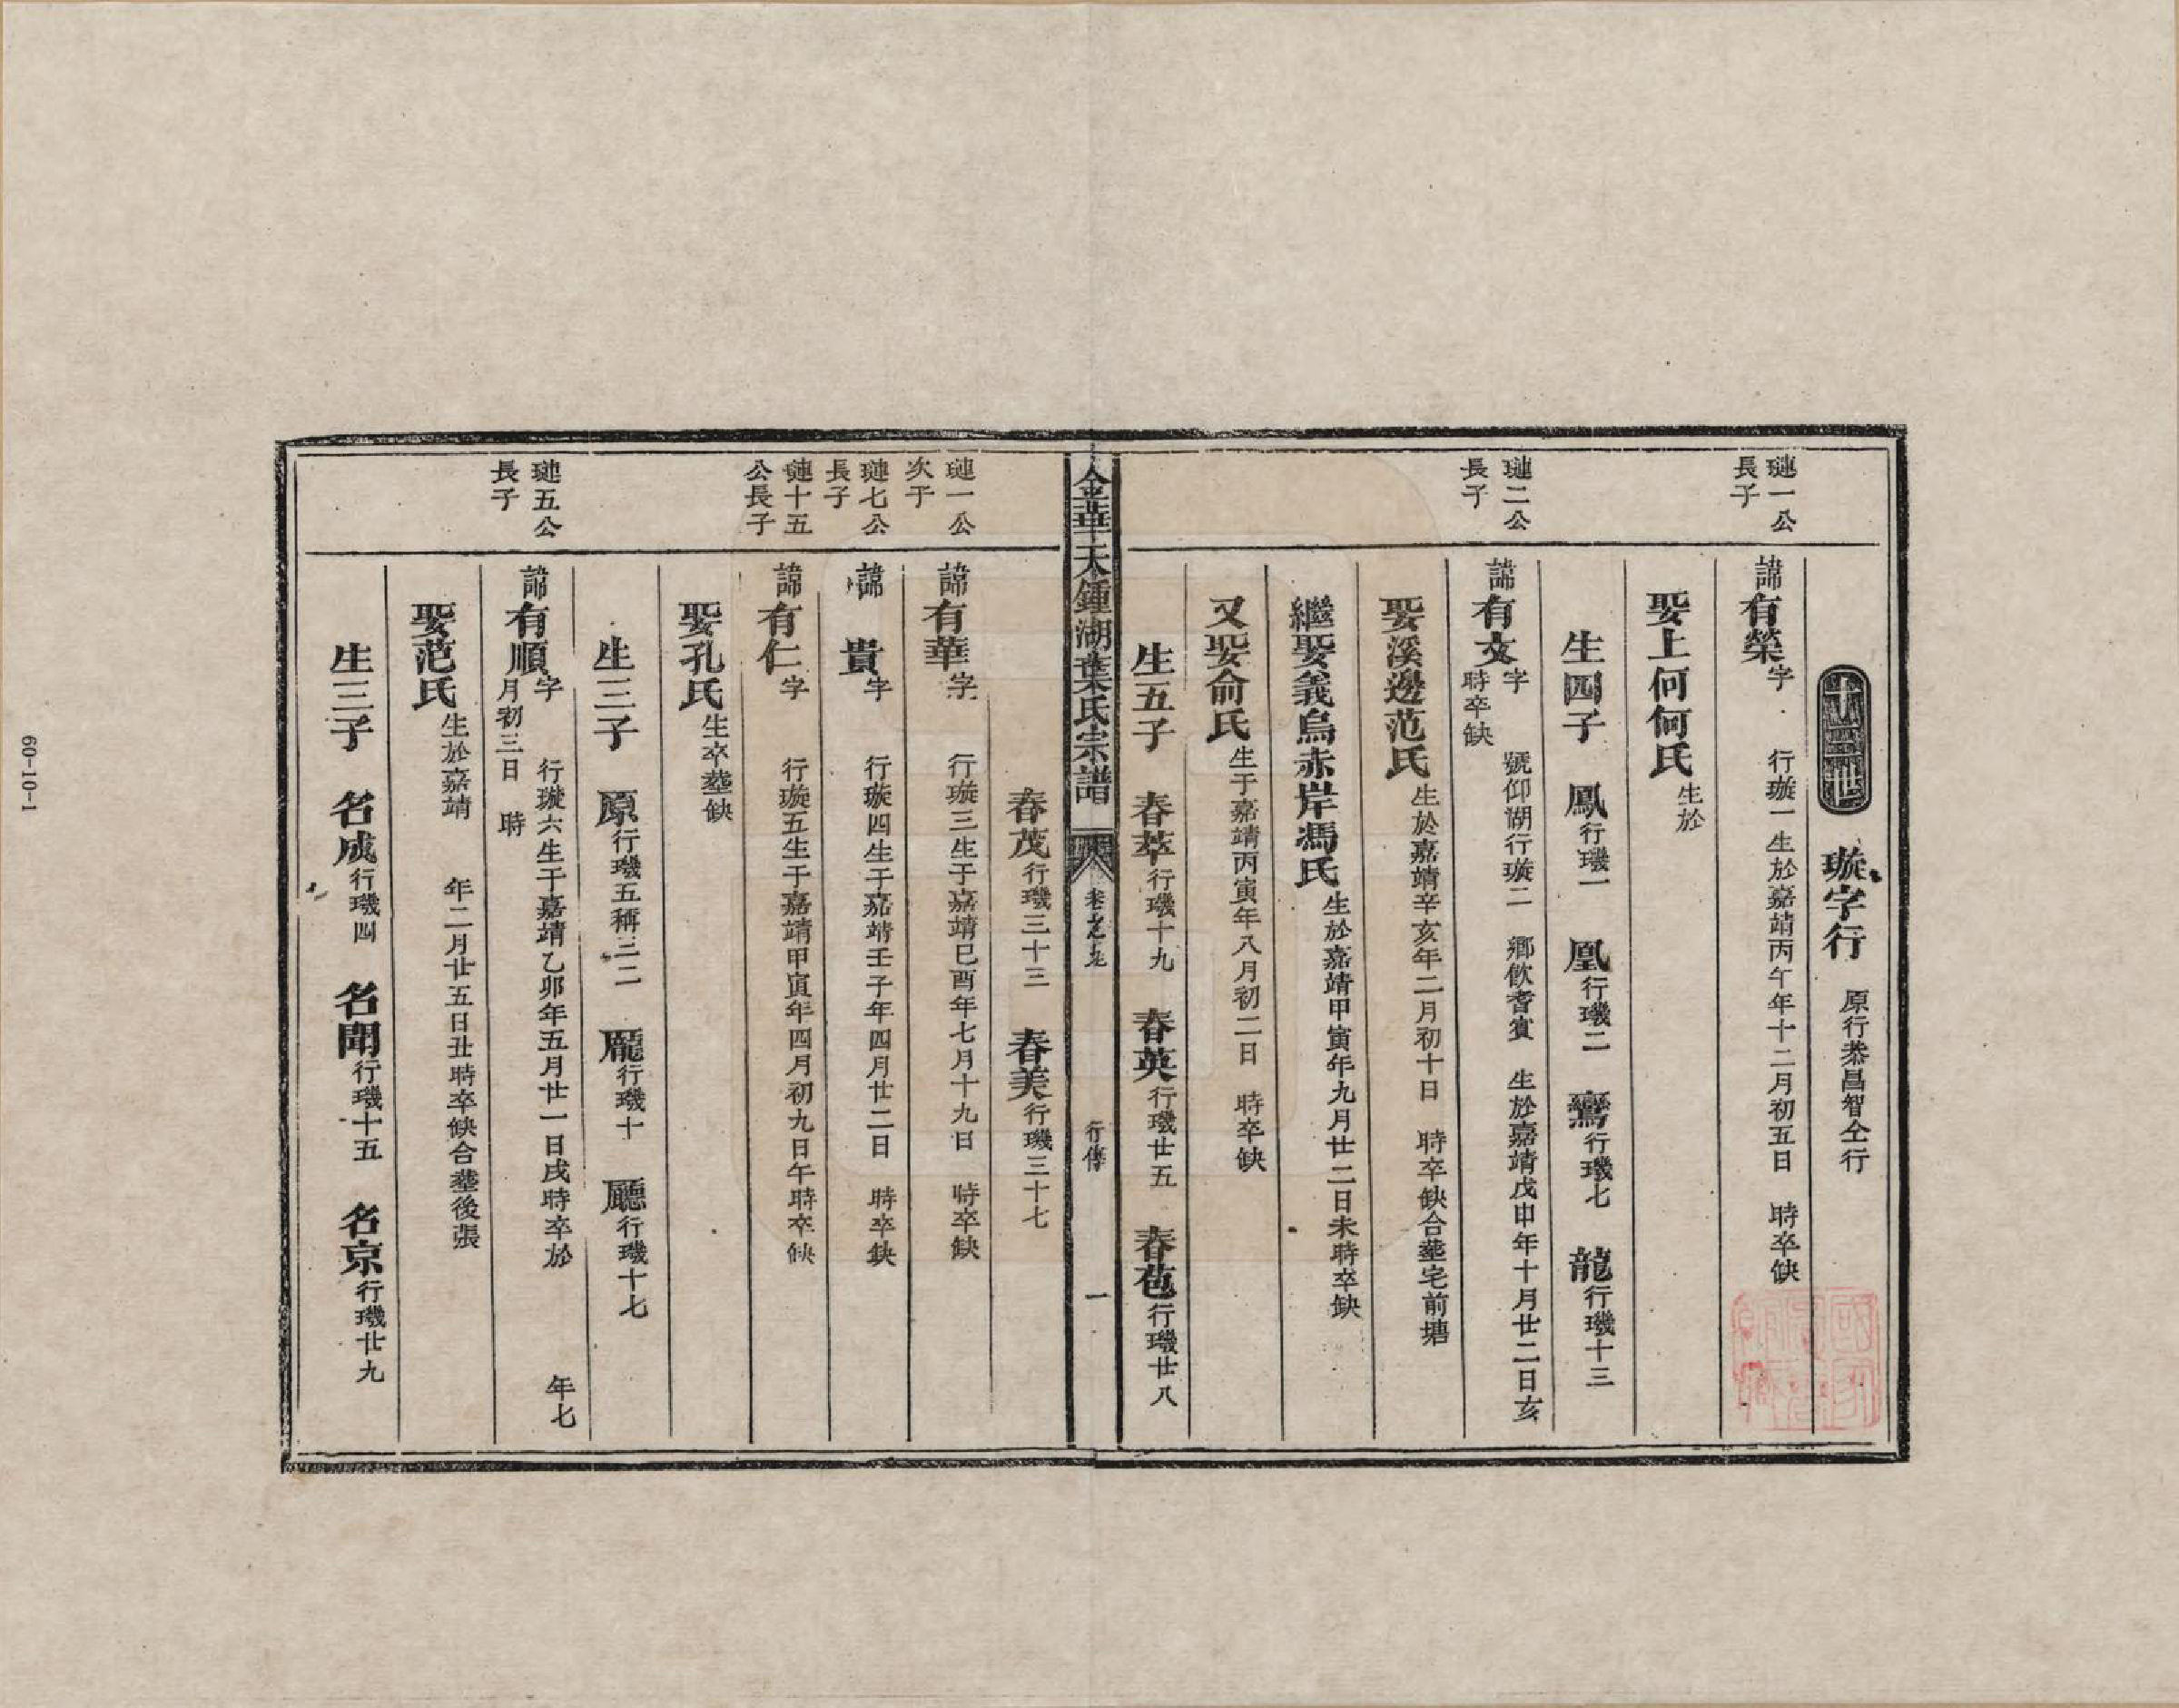 十三世
璇字行 原行恭昌智仝行
璉一公長子
諱有榮字 行璇一生於嘉靖丙午年十二月初五日 時卒缺
娶上何何氏生於
生四子 鳳行璣一 凰行璣二 鸞行璣七 龍行璣十三
璉二公長子
諱有文字 號仰湖行璇二 鄉飲耆賓 生於嘉靖戊申年十月廿二日亥時卒缺
娶溪邊范氏生於嘉靖辛亥年二月初十日 時卒缺合塟宅前塘
繼娶義烏赤岸馮氏生於嘉靖甲寅年九月廿二日未時卒缺
又娶俞氏生于嘉靖丙寅年八月初二日 時卒缺
生五子 春萃行璣十九 春英行璣廿五 春苞行璣廿八
金華天鍾湖葉氏宗譜 卷之九 行傳 一
春茂行璣三十三 春美行璣三十七
璉一公次子
諱有華字 行璇三生于嘉靖己酉年七月十九日 時卒缺
璉七公長子
諱 貴字 行璇四生于嘉靖壬子年四月廿二日 時卒缺
璉十五公長子
諱有仁字 行璇五生于嘉靖甲寅年四月初九日午時卒缺
娶孔氏生卒塟缺
生三子 原行璣五稱三二 龎行璣十 廳行璣十七
璉五公長子
諱有順字 行璇六生于嘉靖乙卯年五月廿一日戌時卒於 年七月初三日 時
娶范氏生於嘉靖 年二月廿五日丑時卒缺合塟後張
生三子 名成行璣四 名聞行璣十五 名京行璣廿九
60-10-1